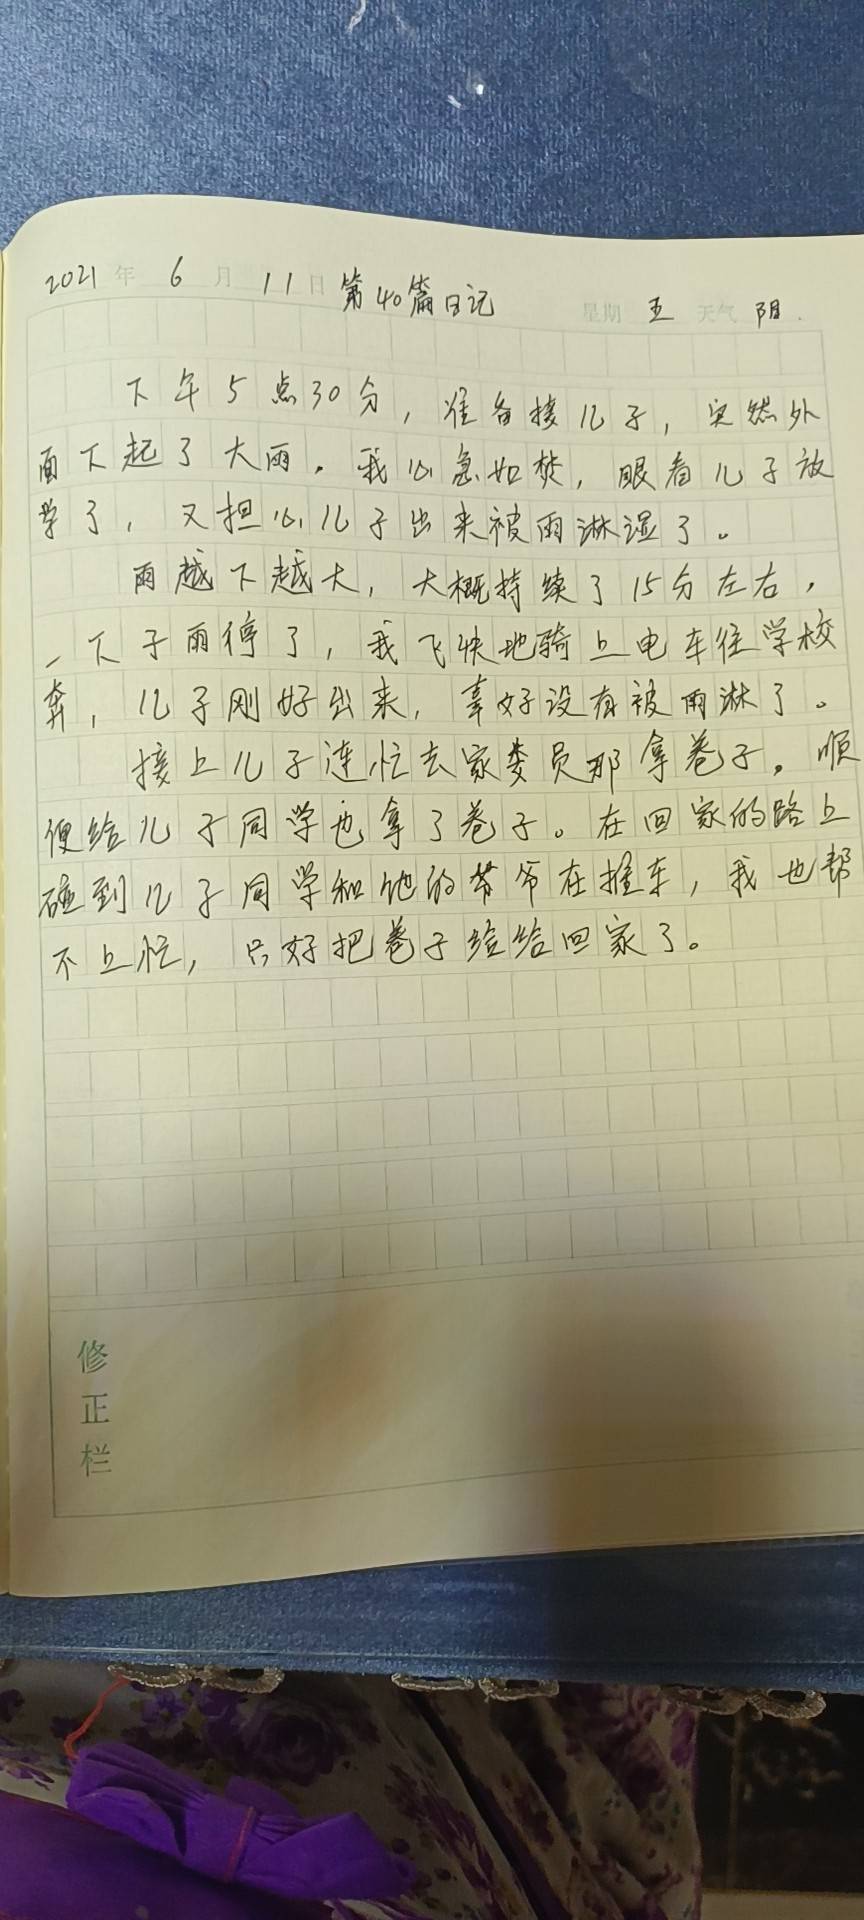 2021年 6月 11日 第40篇日记 星期 五 天气 阴.
下午5点30分，准备接儿子，突然外
面下起了大雨。我心急如焚，眼看儿子放
学了，又担心儿子出来被雨淋湿了。
雨越下越大，大概持续了15分左右，
一下子雨停了，我飞快地骑上电车往学校
奔，儿子刚好出来，幸好没有被雨淋了。
接上儿子连忙去家委员那拿卷子。顺
便给儿子同学也拿了卷子。在回家的路上
碰到儿子同学和他的爷爷在推车，我也帮
不上忙，只好把卷子给给回家了。
修
正
栏